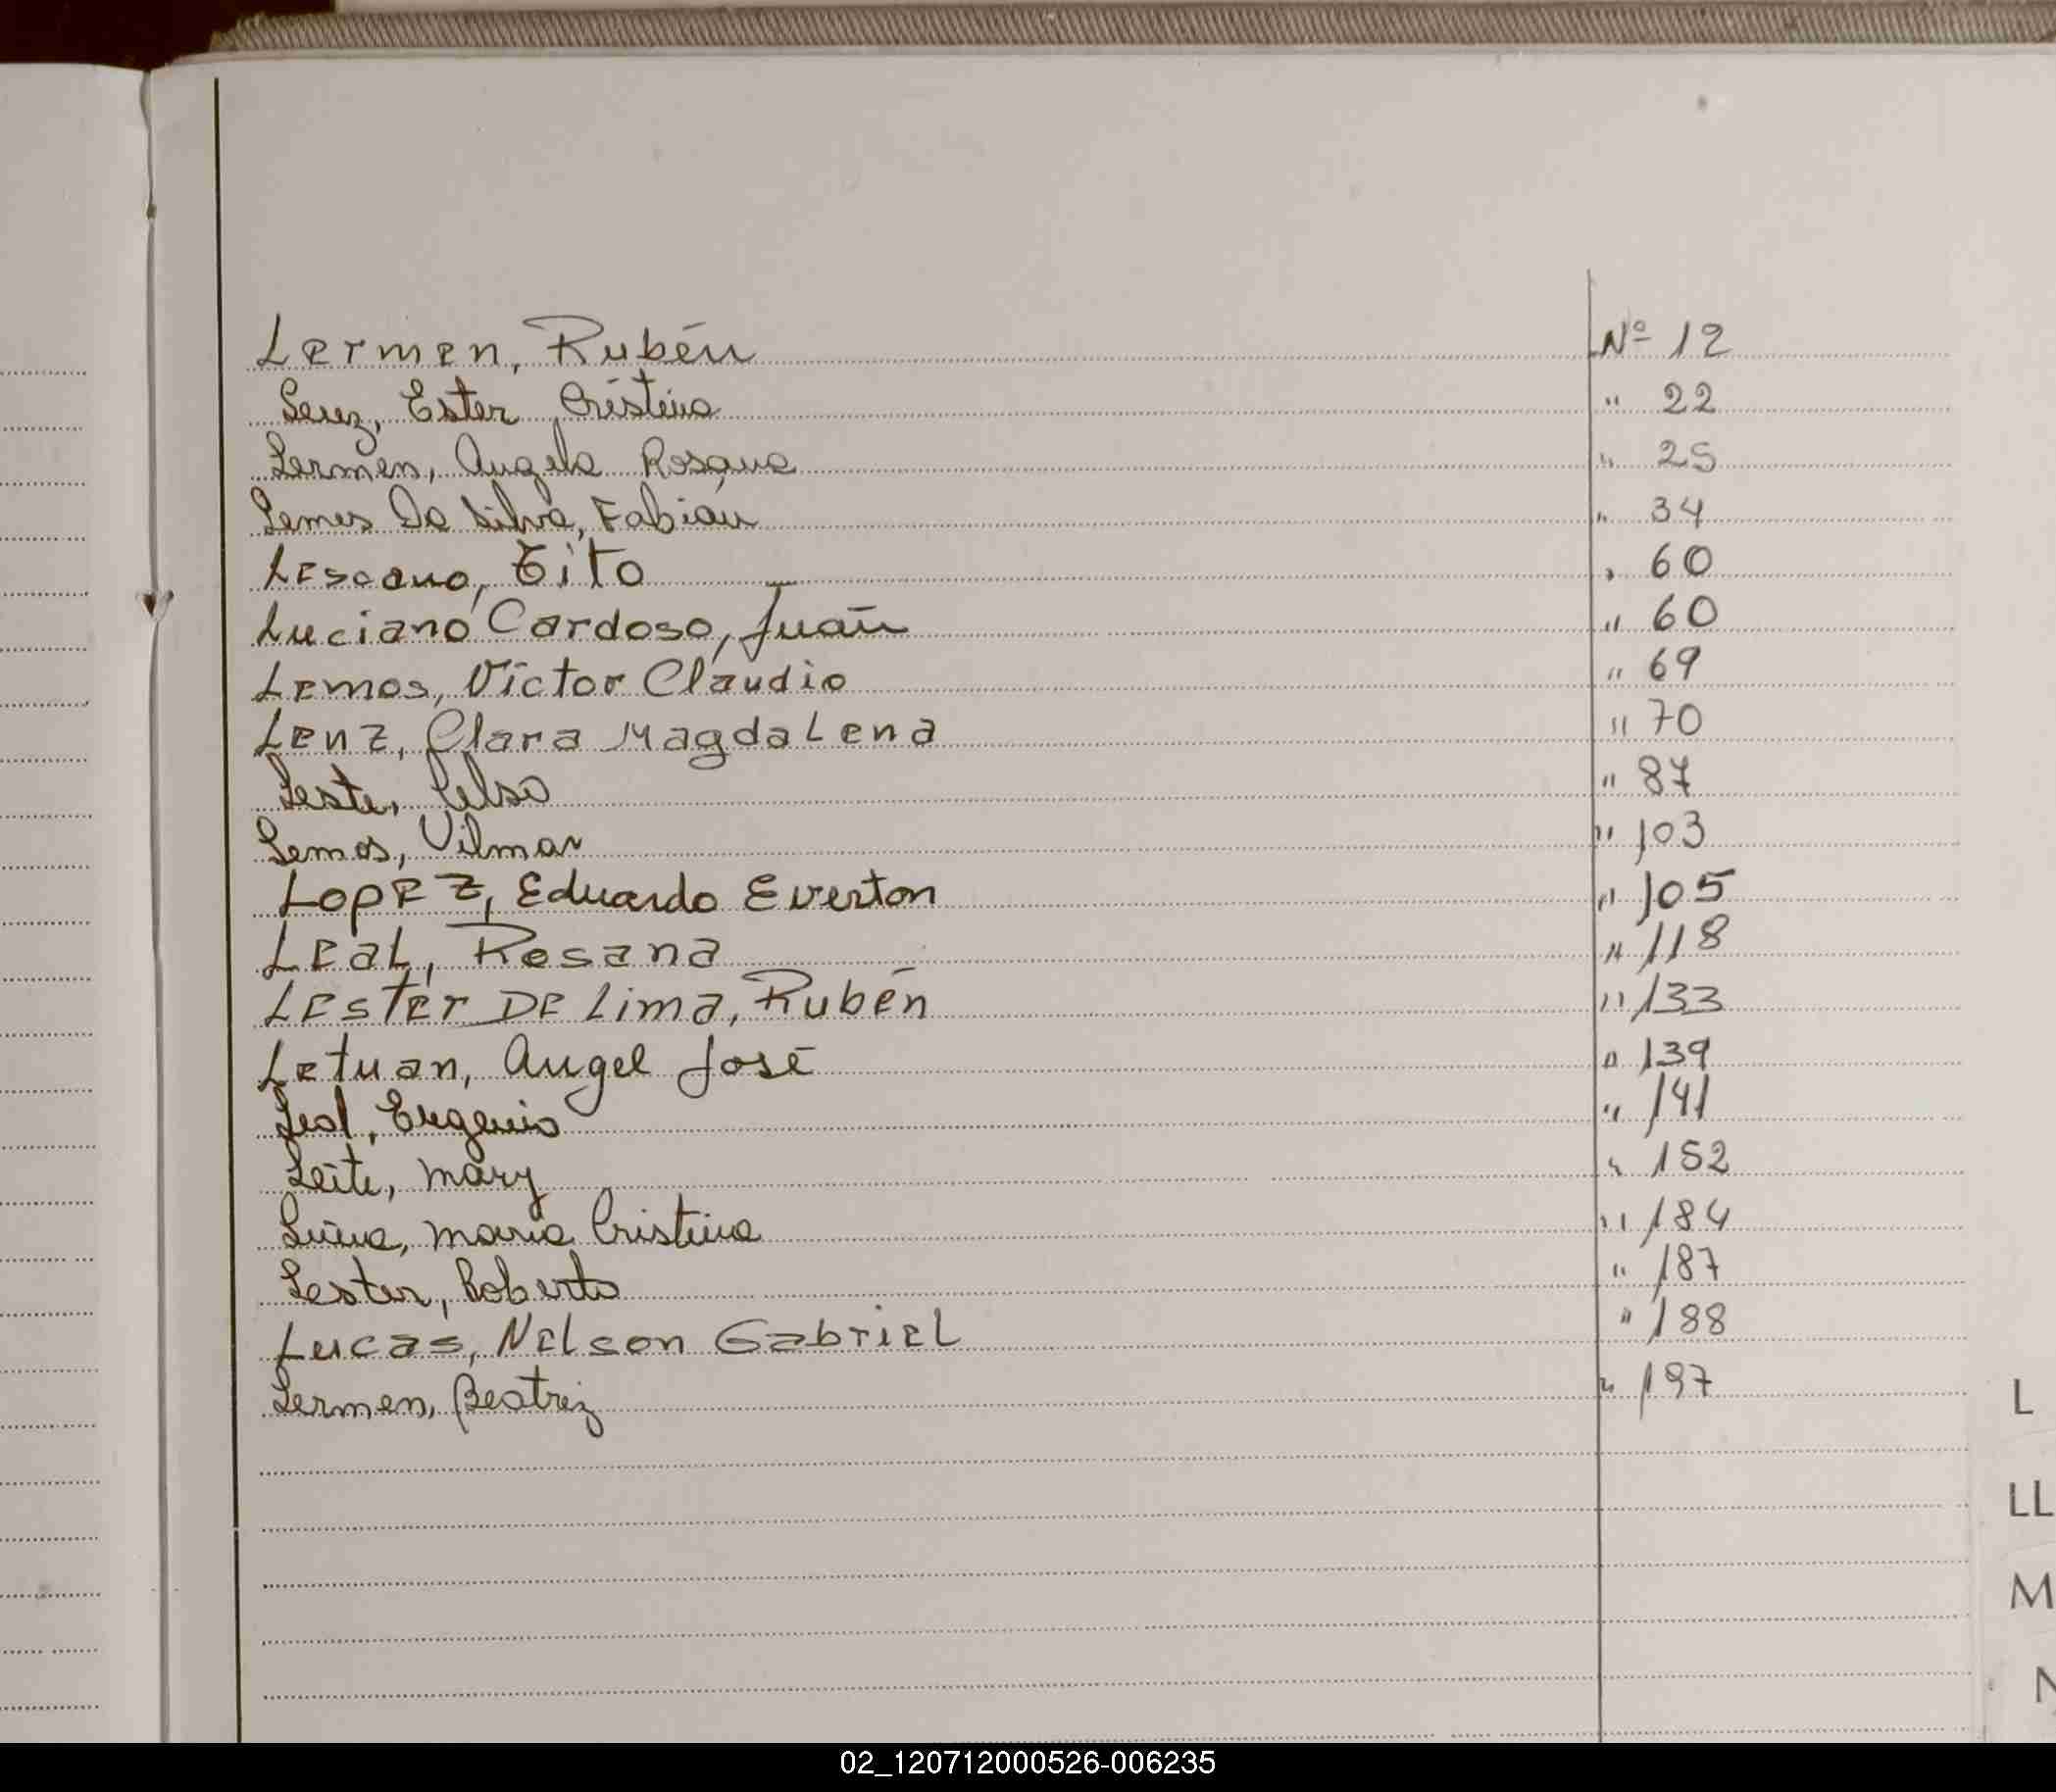 Lermen, Rubén Nº 12
Lenz, Ester Cristina " 22
Lermen, Angela Rosana " 25
Lemes Da Silva, Fabián " 34
Lescano, Tito " 60
Luciano Cardoso, Juan " 60
Lemos, Víctor Claudio " 69
Lenz, Clara Magdalena " 70
Leste, Celso " 87
Lemos, Vilmar " 103
Lopez, Eduardo Everton " 105
Leal, Rosana " 118
Lester De Lima, Rubén " 133
Letuan, Angel José " 139
Leal, Eugenio " 141
Leite, Mary " 152
María Cristina " 184
Lester, Roberto " 187
Lucas, Nelson Gabriel " 188
Lermen, Beatriz " 197
L
LL
M
N
02_120712000526-006235